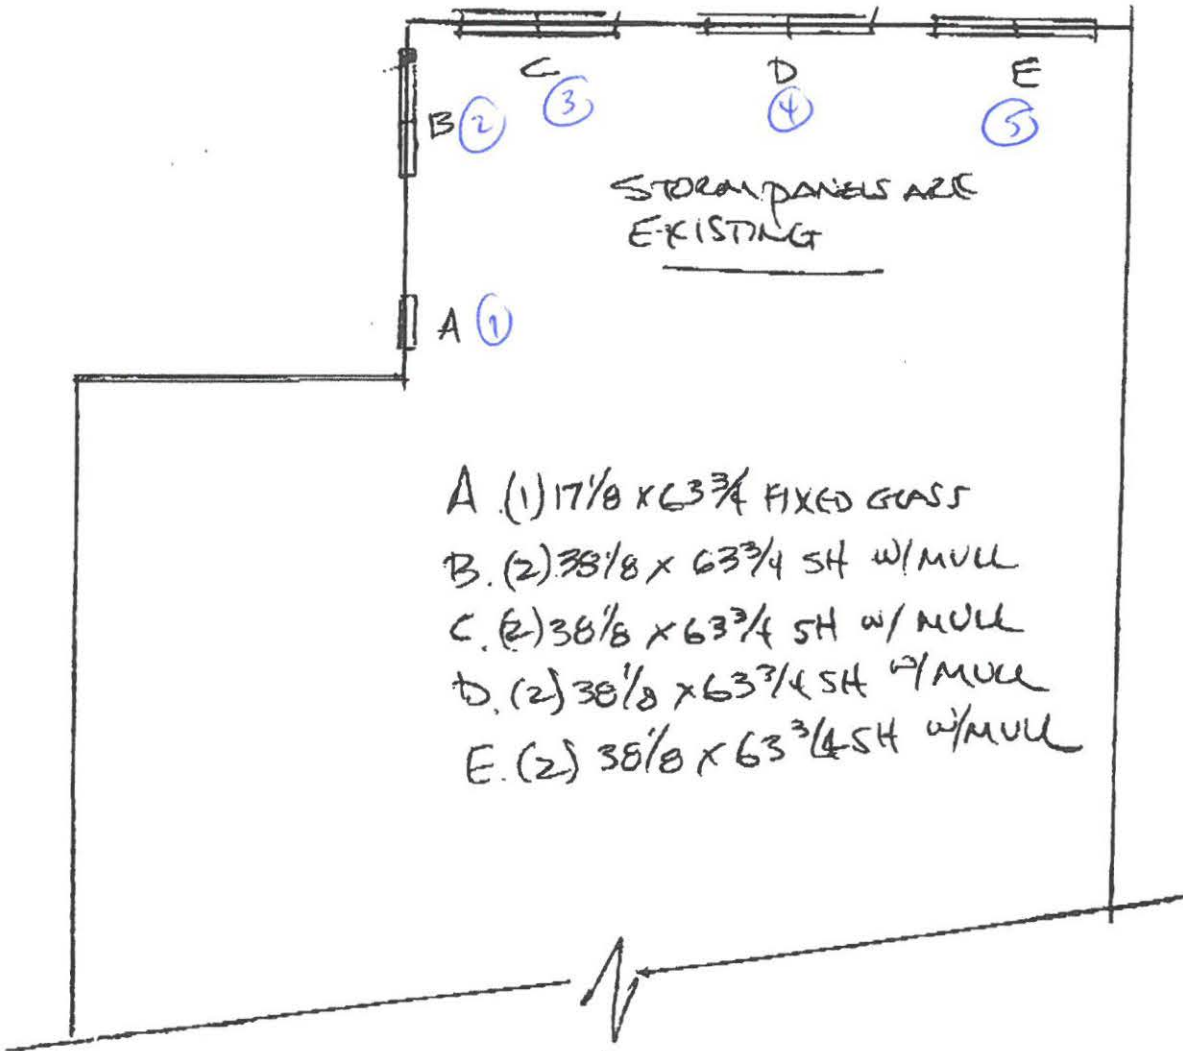 C D E
③ ④ ⑤
B ②
STORM PANELS ARE
EXISTING
A ①
A. (1) 17 1/8 x 63 3/4 FIXED GLASS
B. (2) 38 1/8 x 63 3/4 SH W/ MULL
C. (2) 38 1/8 x 63 3/4 SH W/ MULL
D. (2) 38 1/8 x 63 3/4 SH W/ MULL
E. (2) 38 1/8 x 63 3/4 SH W/ MULL